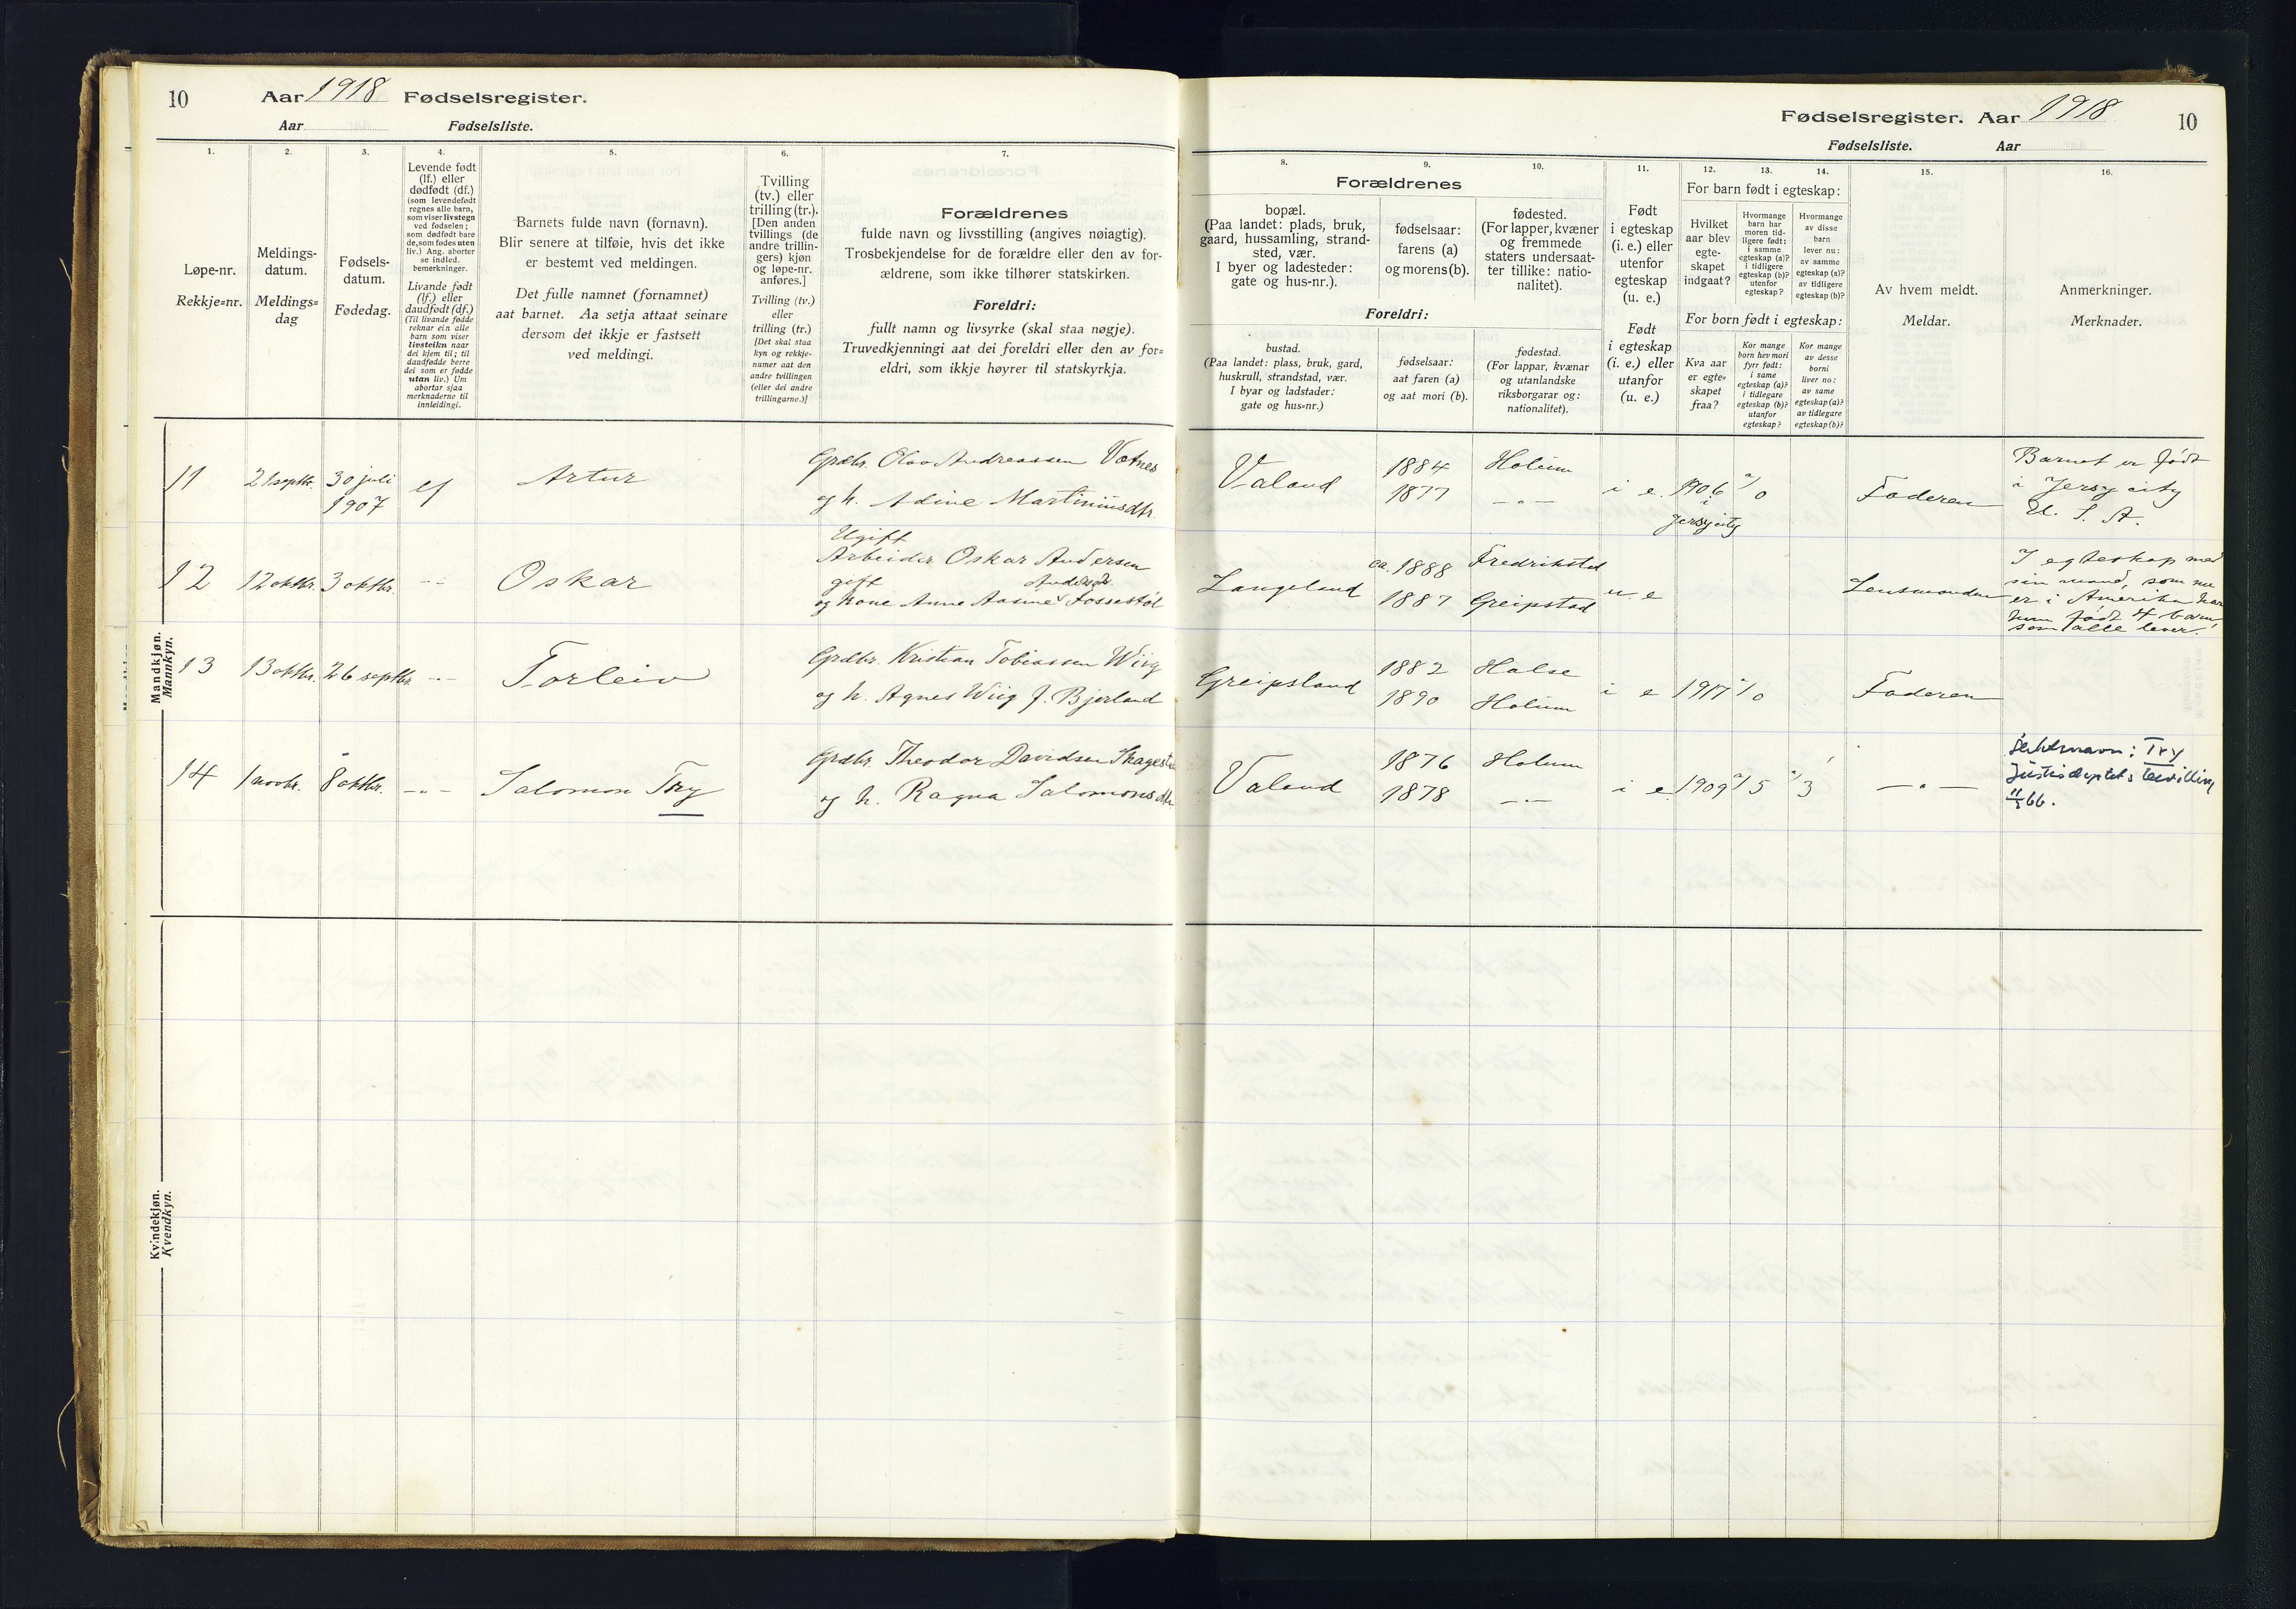 10
Aar 1918 Fødselsregister.
Aar Fødselsliste.
1.
2.
3.
4.
5.
6.
7.
Løpe-nr.
Rekkje=nr.
Meldings-
datum.
Meldings=
dag
Fødsels-
datum.
Fødedag.
Levende født
(lf.) eller
dødfødt (df.)
(som levendefødt
regnes alle barn,
som viser livstegn
ved fødselen;
som dødfødt bare
de, som fødes uten
liv.) Ang. aborter
se indled.
bemerkninger.
Livande født
(lf.) eller
daudfødt (df.)
(Til livande fødde
reknar ein alle
barn som viser
livsteikn naar
dei kjem til; til
daudfødde berre
dei som er fødde
utan liv.) Um
abortar sjaa
merknaderne til
innleidingi.
Barnets fulde navn (fornavn).
Blir senere at tilføie, hvis det ikke
er bestemt ved meldingen.
Det fulle namnet (fornamnet)
aat barnet. Aa setja attaat seinare
dersom det ikkje er fastsett
ved meldingi.
Tvilling
(tv.) eller
trilling (tr.).
[Den anden
tvillings (de
andre trillin-
gers) kjøn
og løpe-nr.
anføres.]
Tvilling (tv.)
eller
trilling (tr.)
[Det skal staa
kyn og rekkje-
numer aat den
andre tvillingen
(eller dei andre
trillingarne.)]
Forældrenes
fulde navn og livsstilling (angives nøiagtig).
Trosbekjendelse for de forældre eller den av for-
ældrene, som ikke tilhører statskirken.
Foreldri:
fullt namn og livsyrke (skal staa nøgje).
Truvedkjenningi aat dei foreldri eller den av for=
eldri, som ikkje høyrer til statskyrkja.
Mandkjøn.
Mannkyn.
11
21 septbr.
30 juli
1907
lf
Artur
Grdbr. Olav Andreassen Vatnes
og h. Adine Martiniusdtr.
12
12 oktbr.
3 oktbr.
-"-
Oskar
Ugift
Arbeider Oskar Andersen
gift
og kone Anne Aasine Fossestøl
13
13 oktbr.
26 septbr.
-"-
Torleiv
Grdbr. Kristian Tobiassen Wiig
og h. Agnes Wiig f. Bjerland
14
1 novbr.
8 oktbr.
-"-
Salomon Try
Grdbr. Theodor Davidsen Skagestad
og h. Ragna Salomonsdtr.
Kvindekjøn.
Kvendkyn.
Fødselsregister. Aar 1918
10
Fødselsliste. Aar
8.
9.
10.
11.
12.
13.
14.
15.
16.
Forældrenes
bopæl.
(Paa landet: plads, bruk,
gaard, hussamling, strand-
sted, vær.
I byer og ladesteder:
gate og hus-nr.).
fødselsaar:
farens (a)
og morens (b).
fødested.
(For lapper, kvæner
og fremmede
staters undersaat-
ter tillike: natio-
nalitet).
Foreldri:
bustad.
(Paa landet: plass, bruk, gard,
huskrull, strandstad, vær.
I byar og ladstader:
gate og hus=nr.)
fødselsaar:
aat faren (a)
og aat mori (b).
fødestad.
(For lappar, kvænar
og utanlandske
riksborgarar og:
nationalitet).
Født
i egteskap
(i. e.) eller
utenfor
egteskap
(u. e.)
Født
i egteskap
(i. e.) eller
utanfor
egteskap
(u. e.)
For barn født i egteskap:
Hvilket
aar blev
egte-
skapet
indgaat?
Hvormange
barn har
moren tid-
ligere født:
i samme
egteskap (a)?
i tidligere
egteskap (b)?
utenfor
egteskap?
Hvormange
av disse
barn
lever nu:
av samme
egteskap (a)?
av tidligere
egteskap (b)?
For born født i egteskap:
Kva aar
er egte=
skapet
fraa?
Kor mange
born hev mori
fyrr født:
i same
egteskap (a)?
i tidlegare
egteskap (b)?
utanfor
egteskap?
Kor mange
av desse
borni
liver no:
av same
egteskap (a)?
av tidlegare
egteskap (b)?
Av hvem meldt.
Meldar.
Anmerkninger.
Merknader.
Valand
1884
1877
Holum
-"-
i e.
1906
i
Jersy city
a) 0
Faderen
Barnet er født
i Jersy city
U. S. A.
Langeland
ca. 1888
1887
Fredrikstad
Greipstad
u. e
Lensmanden
I egteskap med
sin mand, som nu
er i Amerika har
hun født 4 barn,
som alle lever.
Greipsland
1882
1890
Halse
Holum
i e
1917
a) 0
Faderen
Valand
1876
1878
Holum
-"-
i e.
1909
a) 5
a) 3
-"-
Slektsnavn: Try
Justisdeptets bevilling
11/3 66.